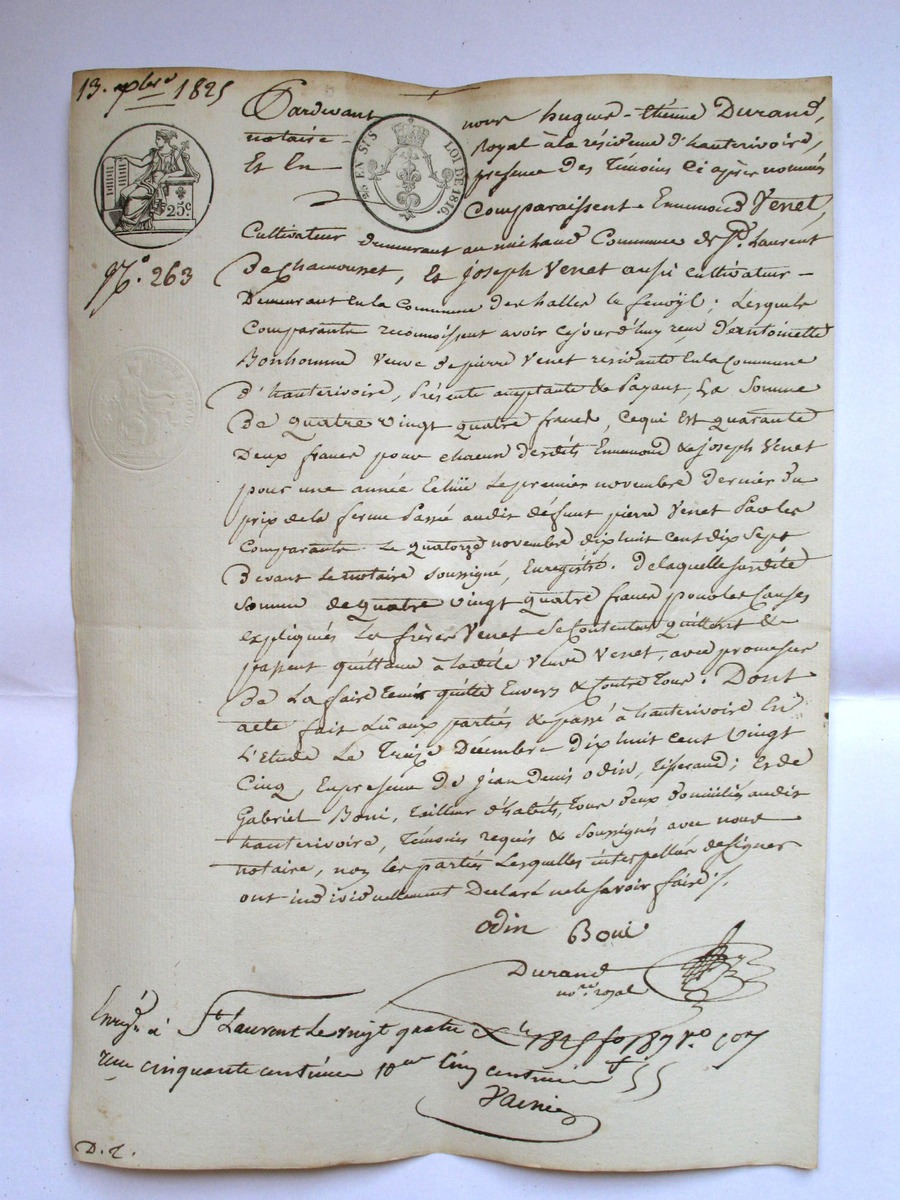 13. xbre 1825
Pardevant nous hugues-étienne Durand,
notaire Royal à la résidence d'hauterivoire,
Et En présence des Témoins Ci après nommés
25 EN SUS LOI DE 1816
Comparaissent Ennemond Venet,
25 c.
Cultivateur demeurant au michaud Commune de St. Laurent
N.o 263
de Chamousset, Et joseph Venet aussi cultivateur
Demeurant En la Commune des halles le fenoÿl; Lesquels
Comparants reconnoissent avoir cejourd'huy reçu d'antoinette
Bonhomme Veuve de pierre Venet residante En la Commune
d'hauterivoire, Présente acceptante & Payant, La Somme
de quatre vingt quatre francs, cequi Est quarante
Deux francs pour chacun desdits Ennemond & joseph Venet
pour une année Echüe le premier novembre dernier du
prix de la ferme Passé audit défunt pierre Venet Par les
Comparants Le quatorze novembre dix huit cent dix Sept
devant Le notaire soussigné, Enregistré. de laquelle susdite
Somme de quatre vingt quatre francs pour les Causes
expliqués La frères Venet se Contentent quittent &
passent quittance à ladite Veuve Venet, avec promesse
de La faire tenir quitte Envers & Contre tous: Dont
acte fait Lû aux parties & passé à hauterivoire En
L'Etude Le Treize Décembre dix huit cent vingt
Cinq, En présence de jean denis odin, tisserand; Et de
Gabriel Boni, tailleur d'habits, tous deux domiciliés audit
hauterivoire, témoins requis & Soussignés avec nous
notaire, non les parties Lesquelles interpellées de signer
ont individuellement Déclaré ne le savoir faire
odin Boni
Durand
no.re royal
Enregé à St. Laurent Le vingt quatre Xbre 1825 fo 187 Vo
reçu cinquante centimes 10me Cinq centimes
D. L.